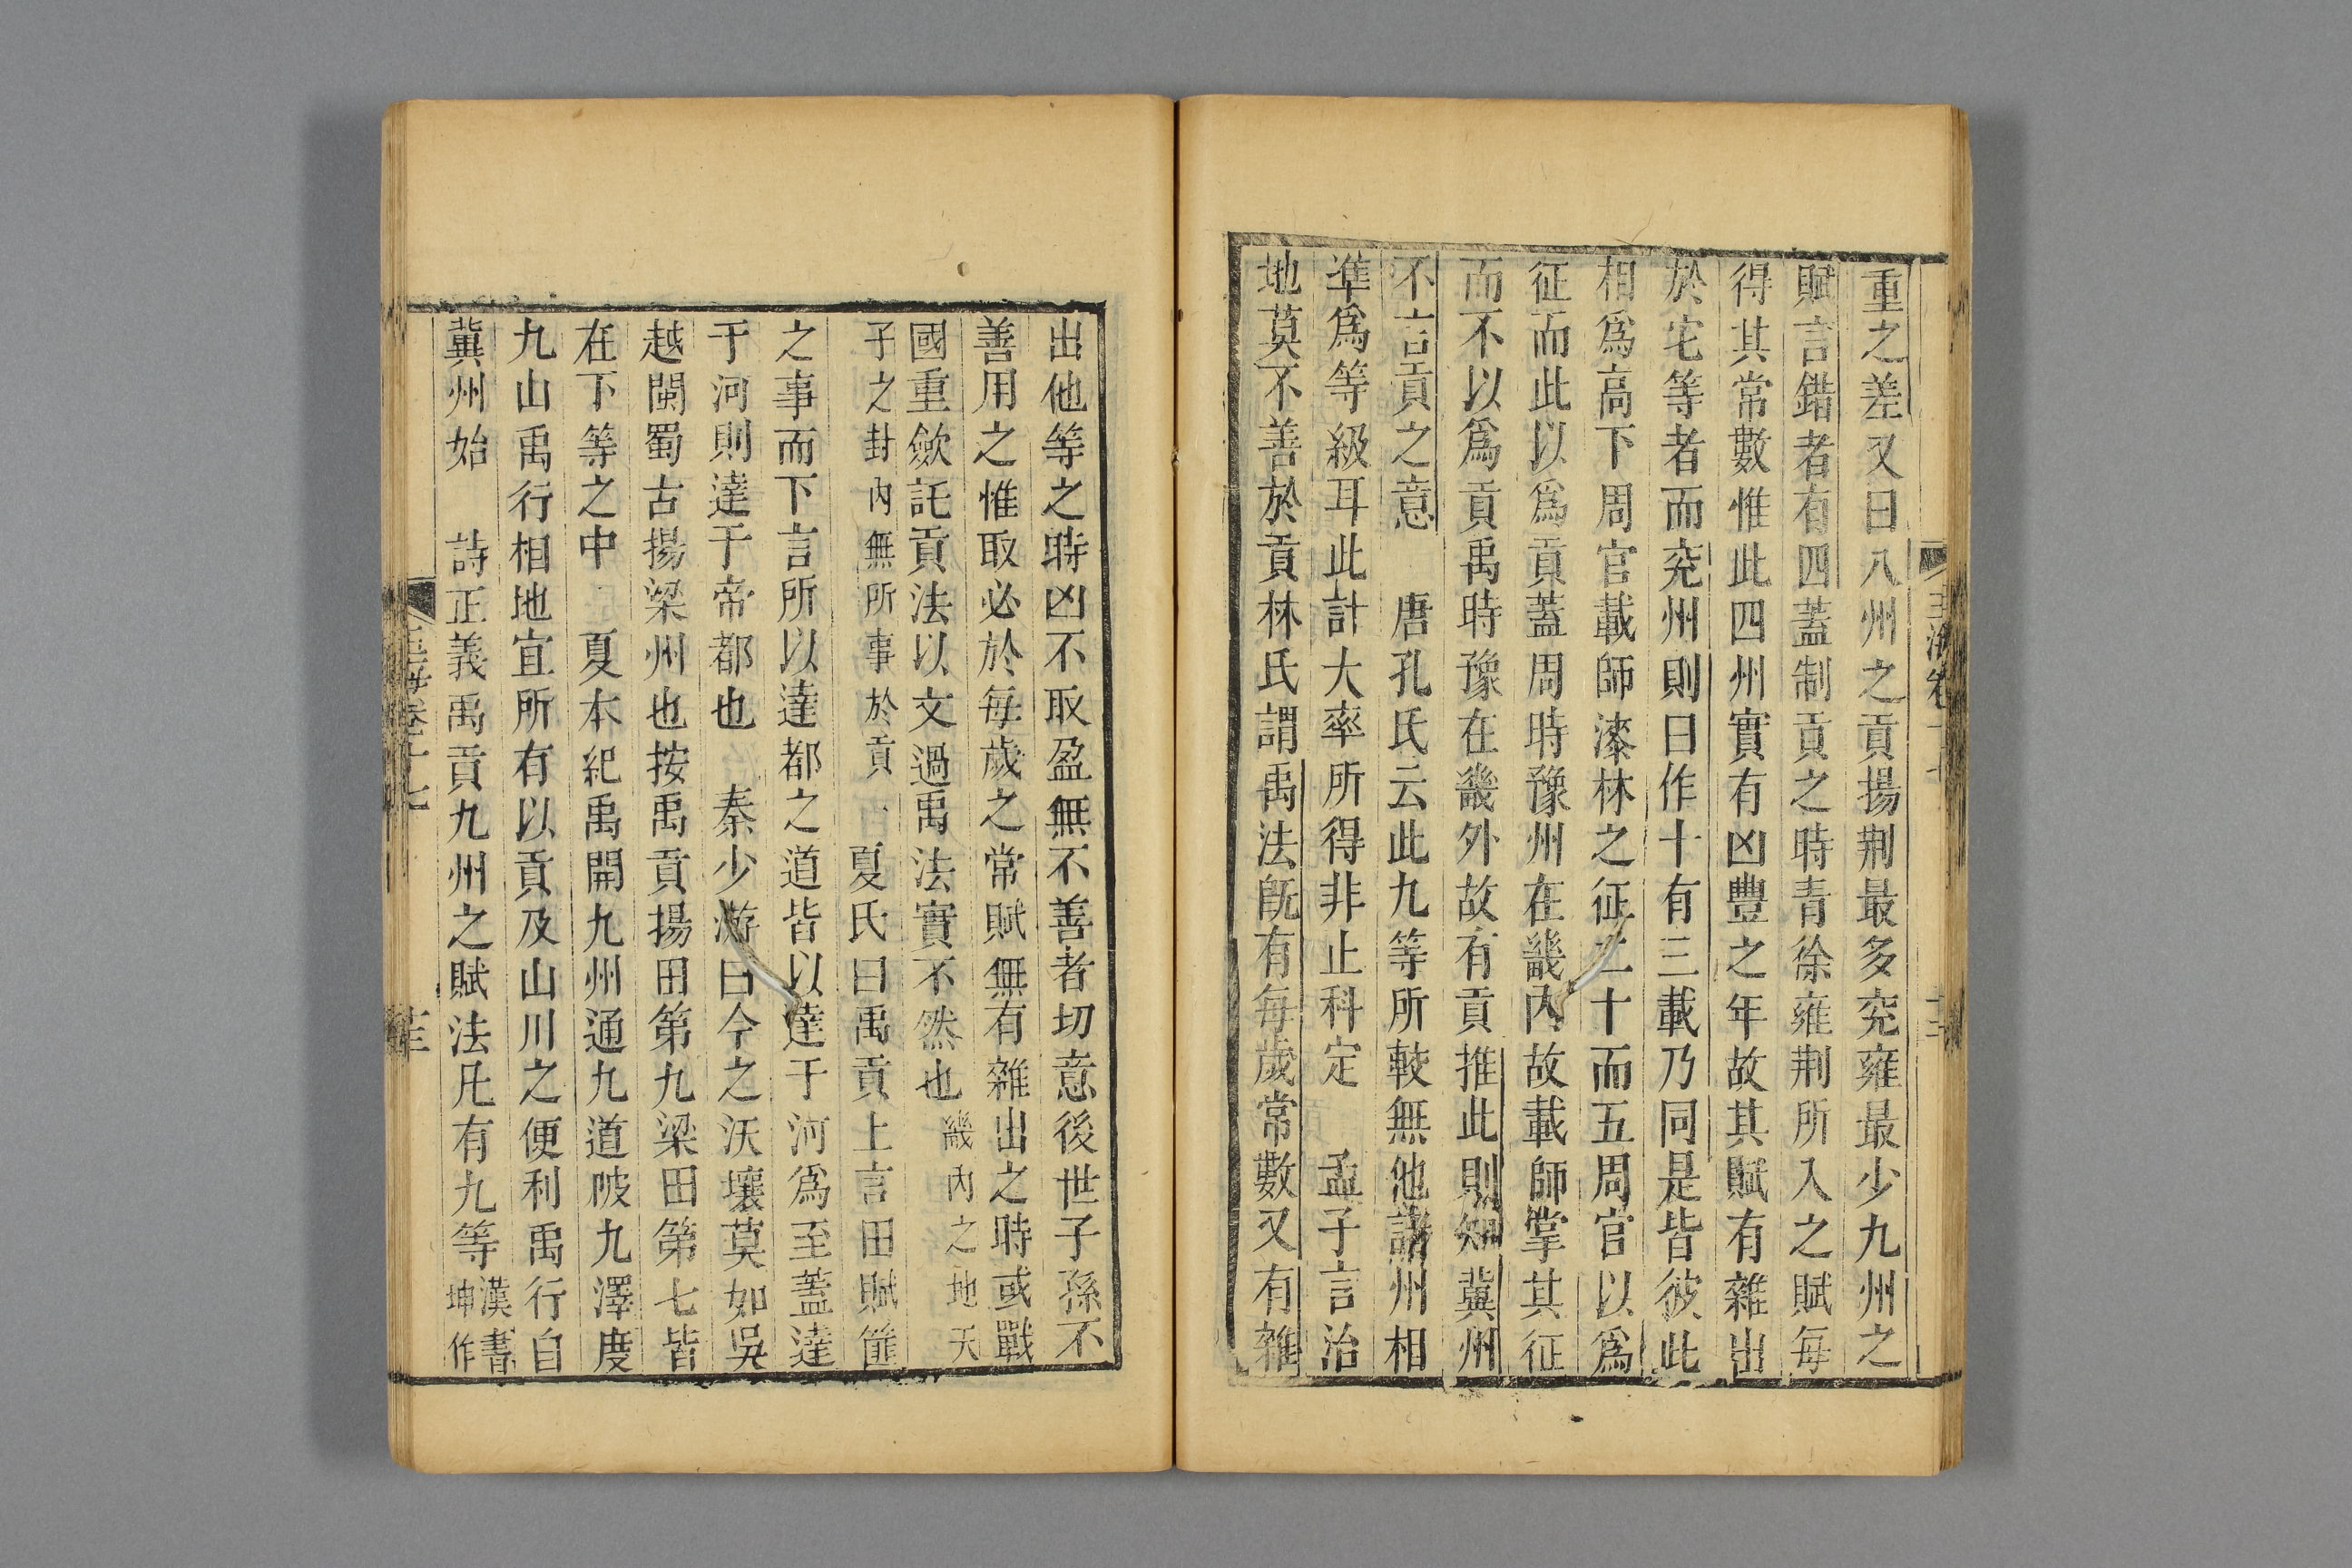 重之差又曰八州之貢揚荆最多兖雍最少九州之
賦言錯者有四蓋制貢之時青徐雍荆所入之賦每
得其常數惟此四州實有凶豐之年故其賦有雜出
於宅等者而兖州則曰作十有三載乃同是皆彼此
相爲高下周官載師漆林之征二十而五周官以爲
征而此以爲貢蓋周時豫州在畿內故載師掌其征
而不以爲貢禹時豫在畿外故有貢推此則知冀州
不言貢之意 唐孔氏云此九等所較無他諸州相
準爲等級耳此計大率所得非止科定 孟子言治
地莫不善於貢林氏謂禹法旣有每歲常數又有雜
玉海卷
出他等之時凶不取盈無不善者切意後世子孫不
善用之惟取必於每歲之常賦無有雜出之時或戰
國重歛託貢法以文過禹法實不然也畿內之地天
子之封內無所事於貢 夏氏曰禹貢上言田賦篚
之事而下言所以達都之道皆以達于河爲至蓋達
于河則達于帝都也 秦少游曰今之沃壤莫如吳
越閩蜀古揚梁州也按禹貢揚田第九梁田第七皆
在下等之中 夏本紀禹開九州通九道陂九澤度
九山禹行相地宜所有以貢及山川之便利禹行自
冀州始 詩正義禹貢九州之賦法凡有九等漢書
坤作
卷十七